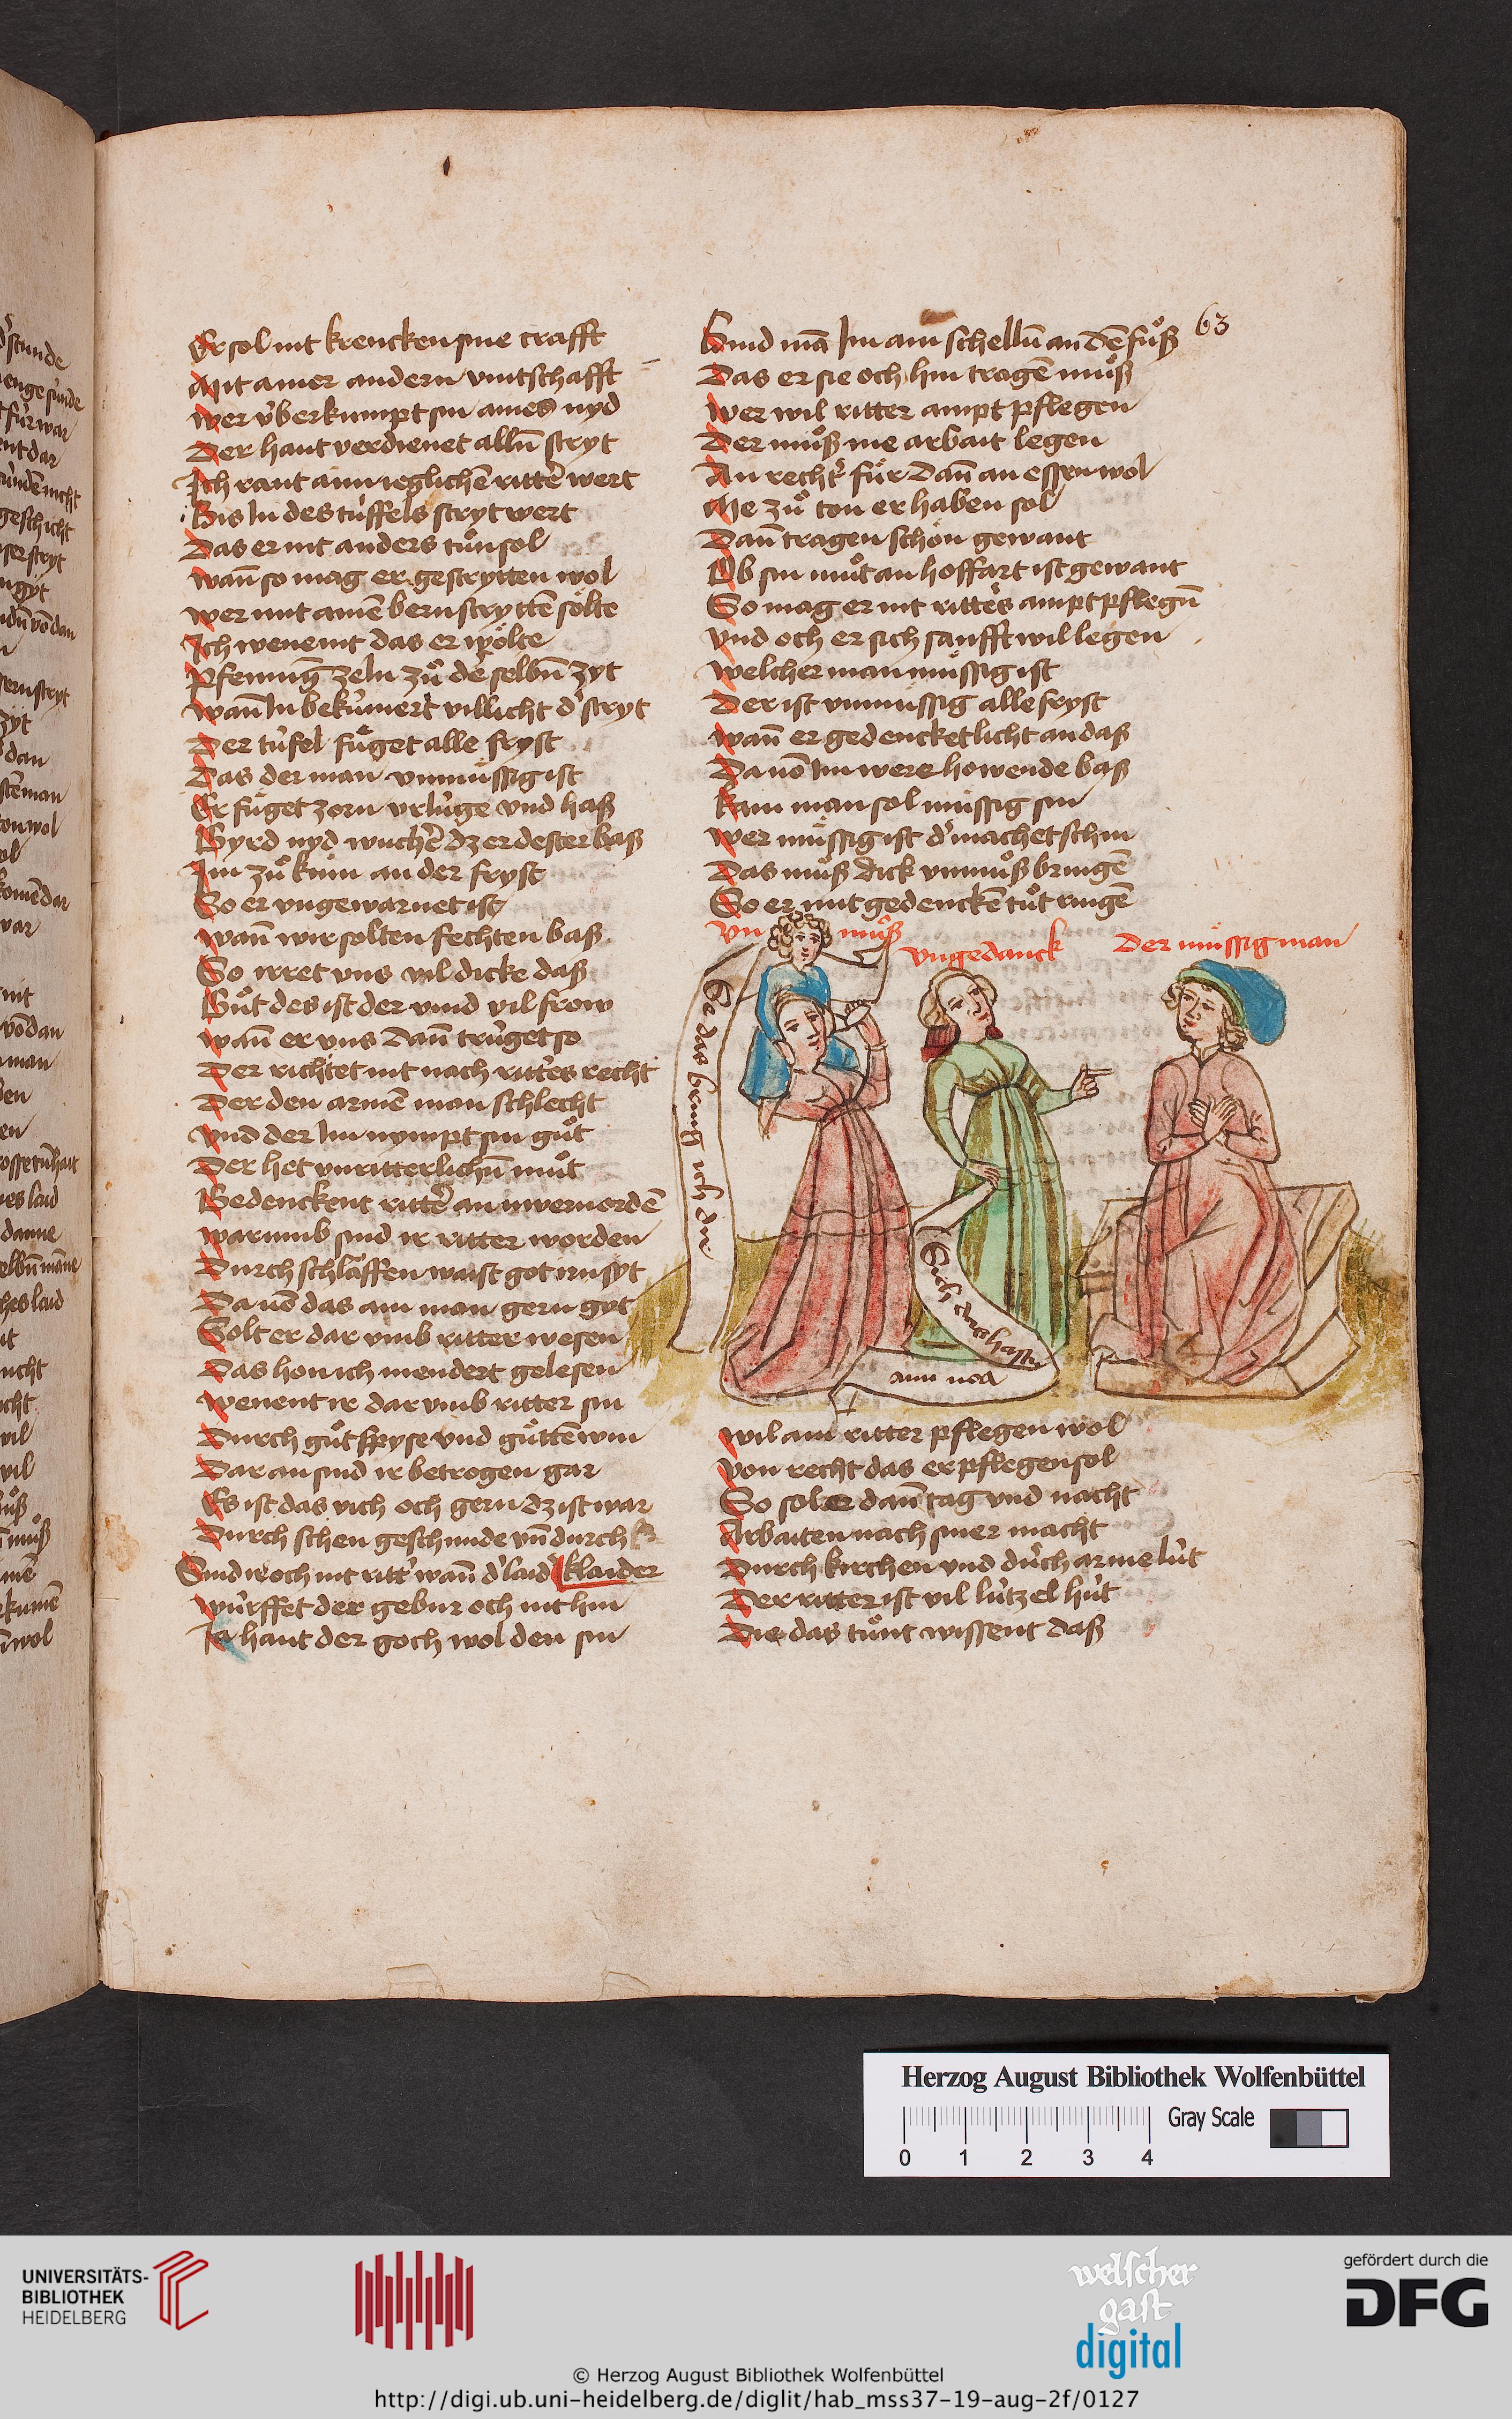 63
Er sol nit krencken sine crafft
Mit ainer andern vintschafft
wer v̇berkumpt sin aines nyd
Der haut verdienet alln̄ stryt
Ich raut ainn ieglichē ritte͛ wert
Bis In des tu̇ffels stryt wert
Das er nit anders tůn sol
wan̄ so mag er gestrytten wol
wer mit ainē bern stryttē sölte
Ich wene nit das er wölte
pfennig zeln zů de͛ selbn̄ zyt
wan̄ In beku̇mert villicht d͛ stryt
Der tu̇fel fůget alle fryst
Das der man vnmu̇ssig ist
Er fu̇get zorn vrlu̇ge vnd haß
Gyrd nyd wuche͛ dz er dester baß
Im zů kům an der fryst
So er vngewarnet ist
wan̄ wir solten fechten baß
So irret vns vil dicke daß
Gůt des ist der vind vil frow
wan̄ er vns dan̄ tru̇get so
Der richtet nit nach ritte͛s recht
Der den armē man schlecht
vnd der Im nympt sin gůt
Der het vnritterlichn̄ můt
Bedenckent ritte͛ an uwern ordē
warumb sind ir ritter worden
Durch schlăffen waist got irn syt
Da uō das ain man gern gyt
Solt er dar vmb ritter wesen
Das hon ich niendert gelesen
wenent ir dar vmb ritter sin
Durch gůt spyse vnd gůttē win
Dar an sind ir betrogen gar
Es ist das vich och gern dz ist war
Durch schen geschmide vn̄ durch
Sind ir och nit ritt͛ wan̄ d͛ laid klaider
wu̇rffet der gebur och nit hin
Ia haut der goch wol den sin
Bind mā Im ain schelln̄ an dē fůß
Das er sie och hin tragē můß
wer wil ritter ampt pflegen
Der můß me arbait legen
An recht͛ fůr dan̄ an essen wol
Me zů ton er haben sol
Dan̄ tragen schön gewant
Ob sin můt an hoffart ist gewant
So mag er nit ritte͛s ampt pflegn̄
vnd och er sich sanfft wil legen
welcher man mu̇ssig ist
Der ist vnmu̇ssig alle fryst
wan̄ er gedencket licht an daß
Da uō Im were howende baß
kain man sol mu̇ssig sin
wer mu̇ssig ist d͛ machet schin
Das můß dick vnmůß bringē
So er mit gedenckē tůt ringē
vn můß
vngedanck
Der mu̇ssig man
Se das bring ich dir
Sich
ain
wil ain ritter pflegen wol
von recht das er pflegen sol
So sol er dan̄ tag vnd nacht
Arbaiten nach siner macht
Durch kirchen vnd du̇rch arme lu̇t
Der ritter ist vil lu̇tzel hu̇t
Die das tůnt wissent daß
Herzog August Bibliothek Wolfenbüttel
Gray Scale
0 1 2 3 4
UNIVERSITÄTS-
BIBLIOTHEK
HEIDELBERG
welscher
gast
digital
gefördert durch die
DFG
© Herzog August Bibliothek Wolfenbüttel
http://digi.ub.uni-heidelberg.de/diglit/hab_mss37-19-aug-2f/0127